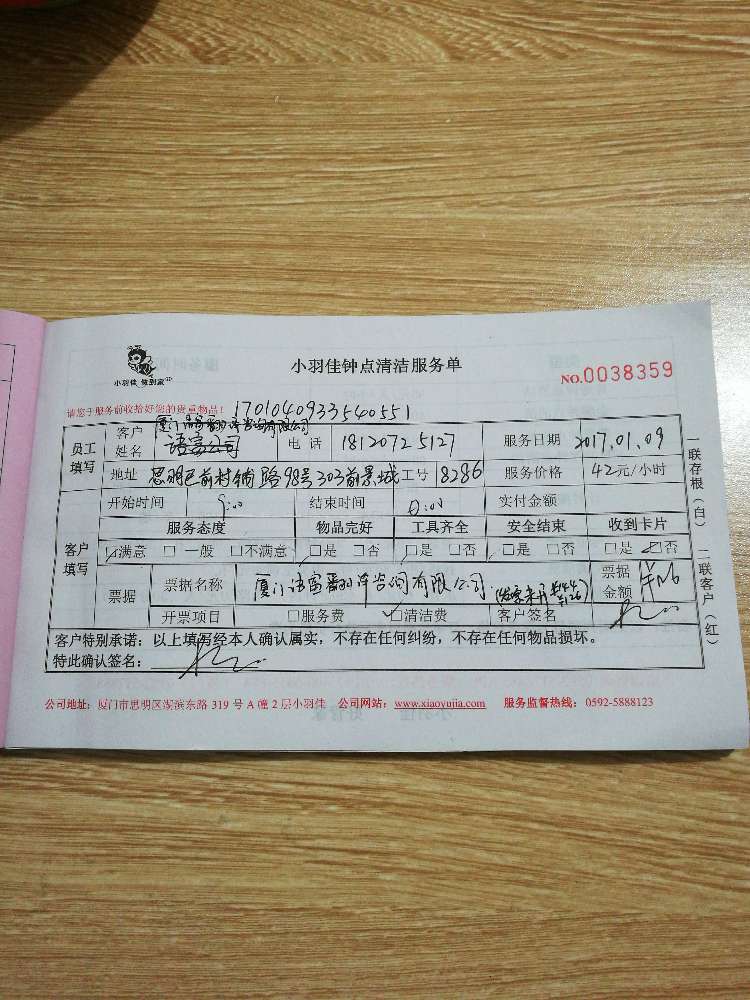 小羽佳 做到家
小羽佳钟点清洁服务单
NO.0038359
请您于服务前收给好您的贵重物品!
1701040933540551
员工填写
客户姓名 语富公司 电话 18120725127 服务日期 2017.01.09
地址 思明区前村铺路98号302前景城 工号 8286 服务价格 42元/小时
客户填写
开始时间 9:00 结束时间 实付金额
服务态度 物品完好 工具齐全 安全结束 收到卡片
☑满意 □一般 □不满意 □是 □否 □是 □否 □是 □否 □是 ☑否
票据 票据名称 厦门语富翻译咨询有限公司 票据金额
开票项目 □服务费 ☑清洁费 客户签名
客户特别承诺:以上填写经本人确认属实,不存在任何纠纷,不存在任何物品损坏。
特此确认签名:
一联存根(白) 二联客户(红)
公司地址:厦门市思明区湖滨东路 319 号 A 幢 2 层小羽佳 公司网站:www.xiaoyujia.com 服务监督热线:0592-5888123